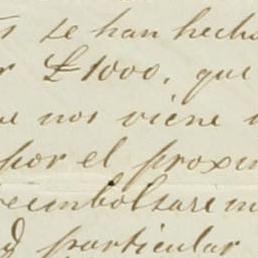 s se han hecho
r £1000, que
e nos viene
por el proxim
reembolsarem
particular